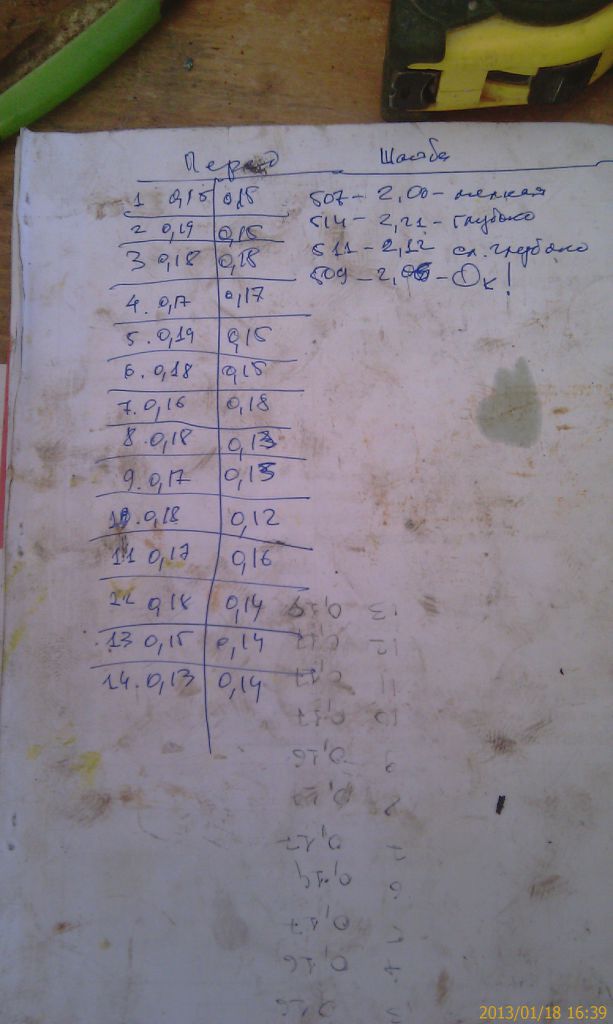 Перед Шайба
1 0,15 0,15
2 0,19 0,15
3 0,18 0,18
4. 0,17 0,17
5. 0,19 0,15
6. 0,18 0,15
7. 0,16 0,18
8. 0,18 0,13
9. 0,17 0,15
10. 0,18 0,12
11 0,17 0,16
12 0,18 0,14
13 0,15 0,14
14. 0,13 0,14
507 – 2,00 – мелкая
514 – 2,21 – глубоко
511 – 2,12 сл. глубоко
509 – 2,06 – Ок!
13
12 0,17
11 0,17
10 0,17
9 0,16
8
7 0,17
6 0,14
0,17
0,16
0,16
2013/01/18 16:39